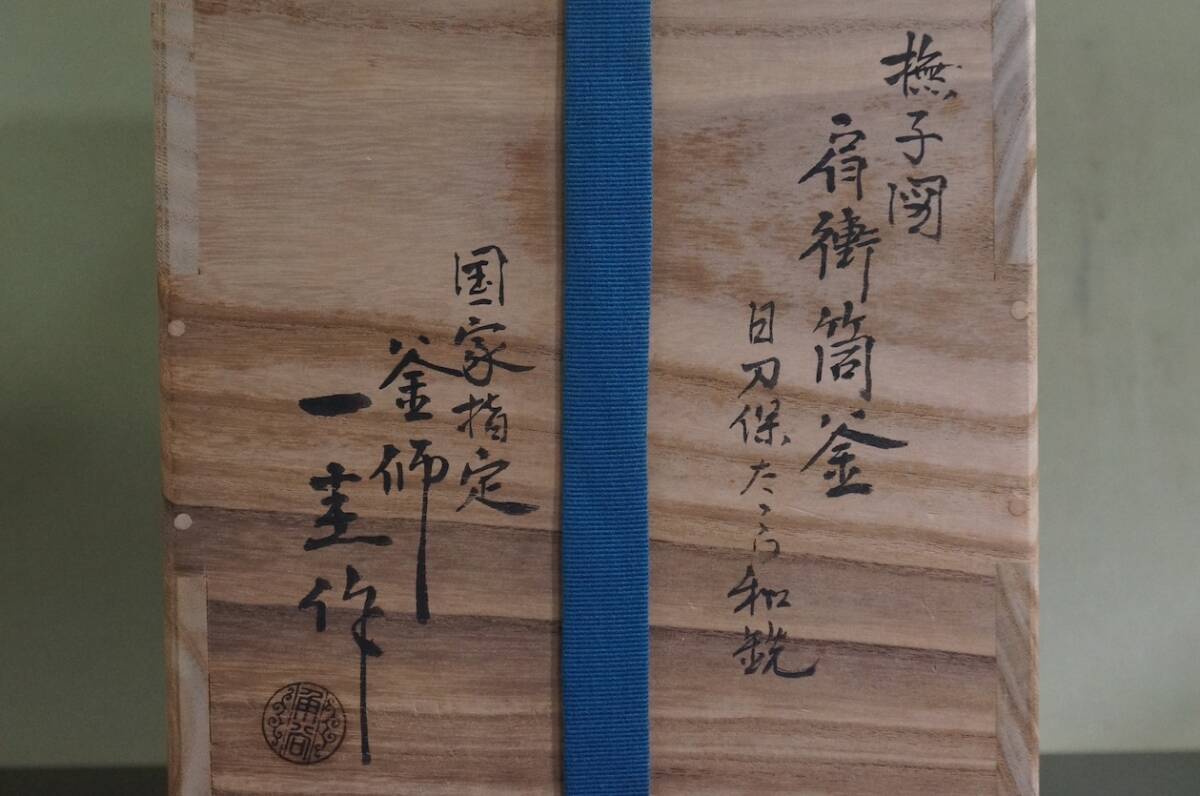 撫子図
肩衝筒釜
日刀保たゝら和銑
国家指定
釜師
一圭作
角谷